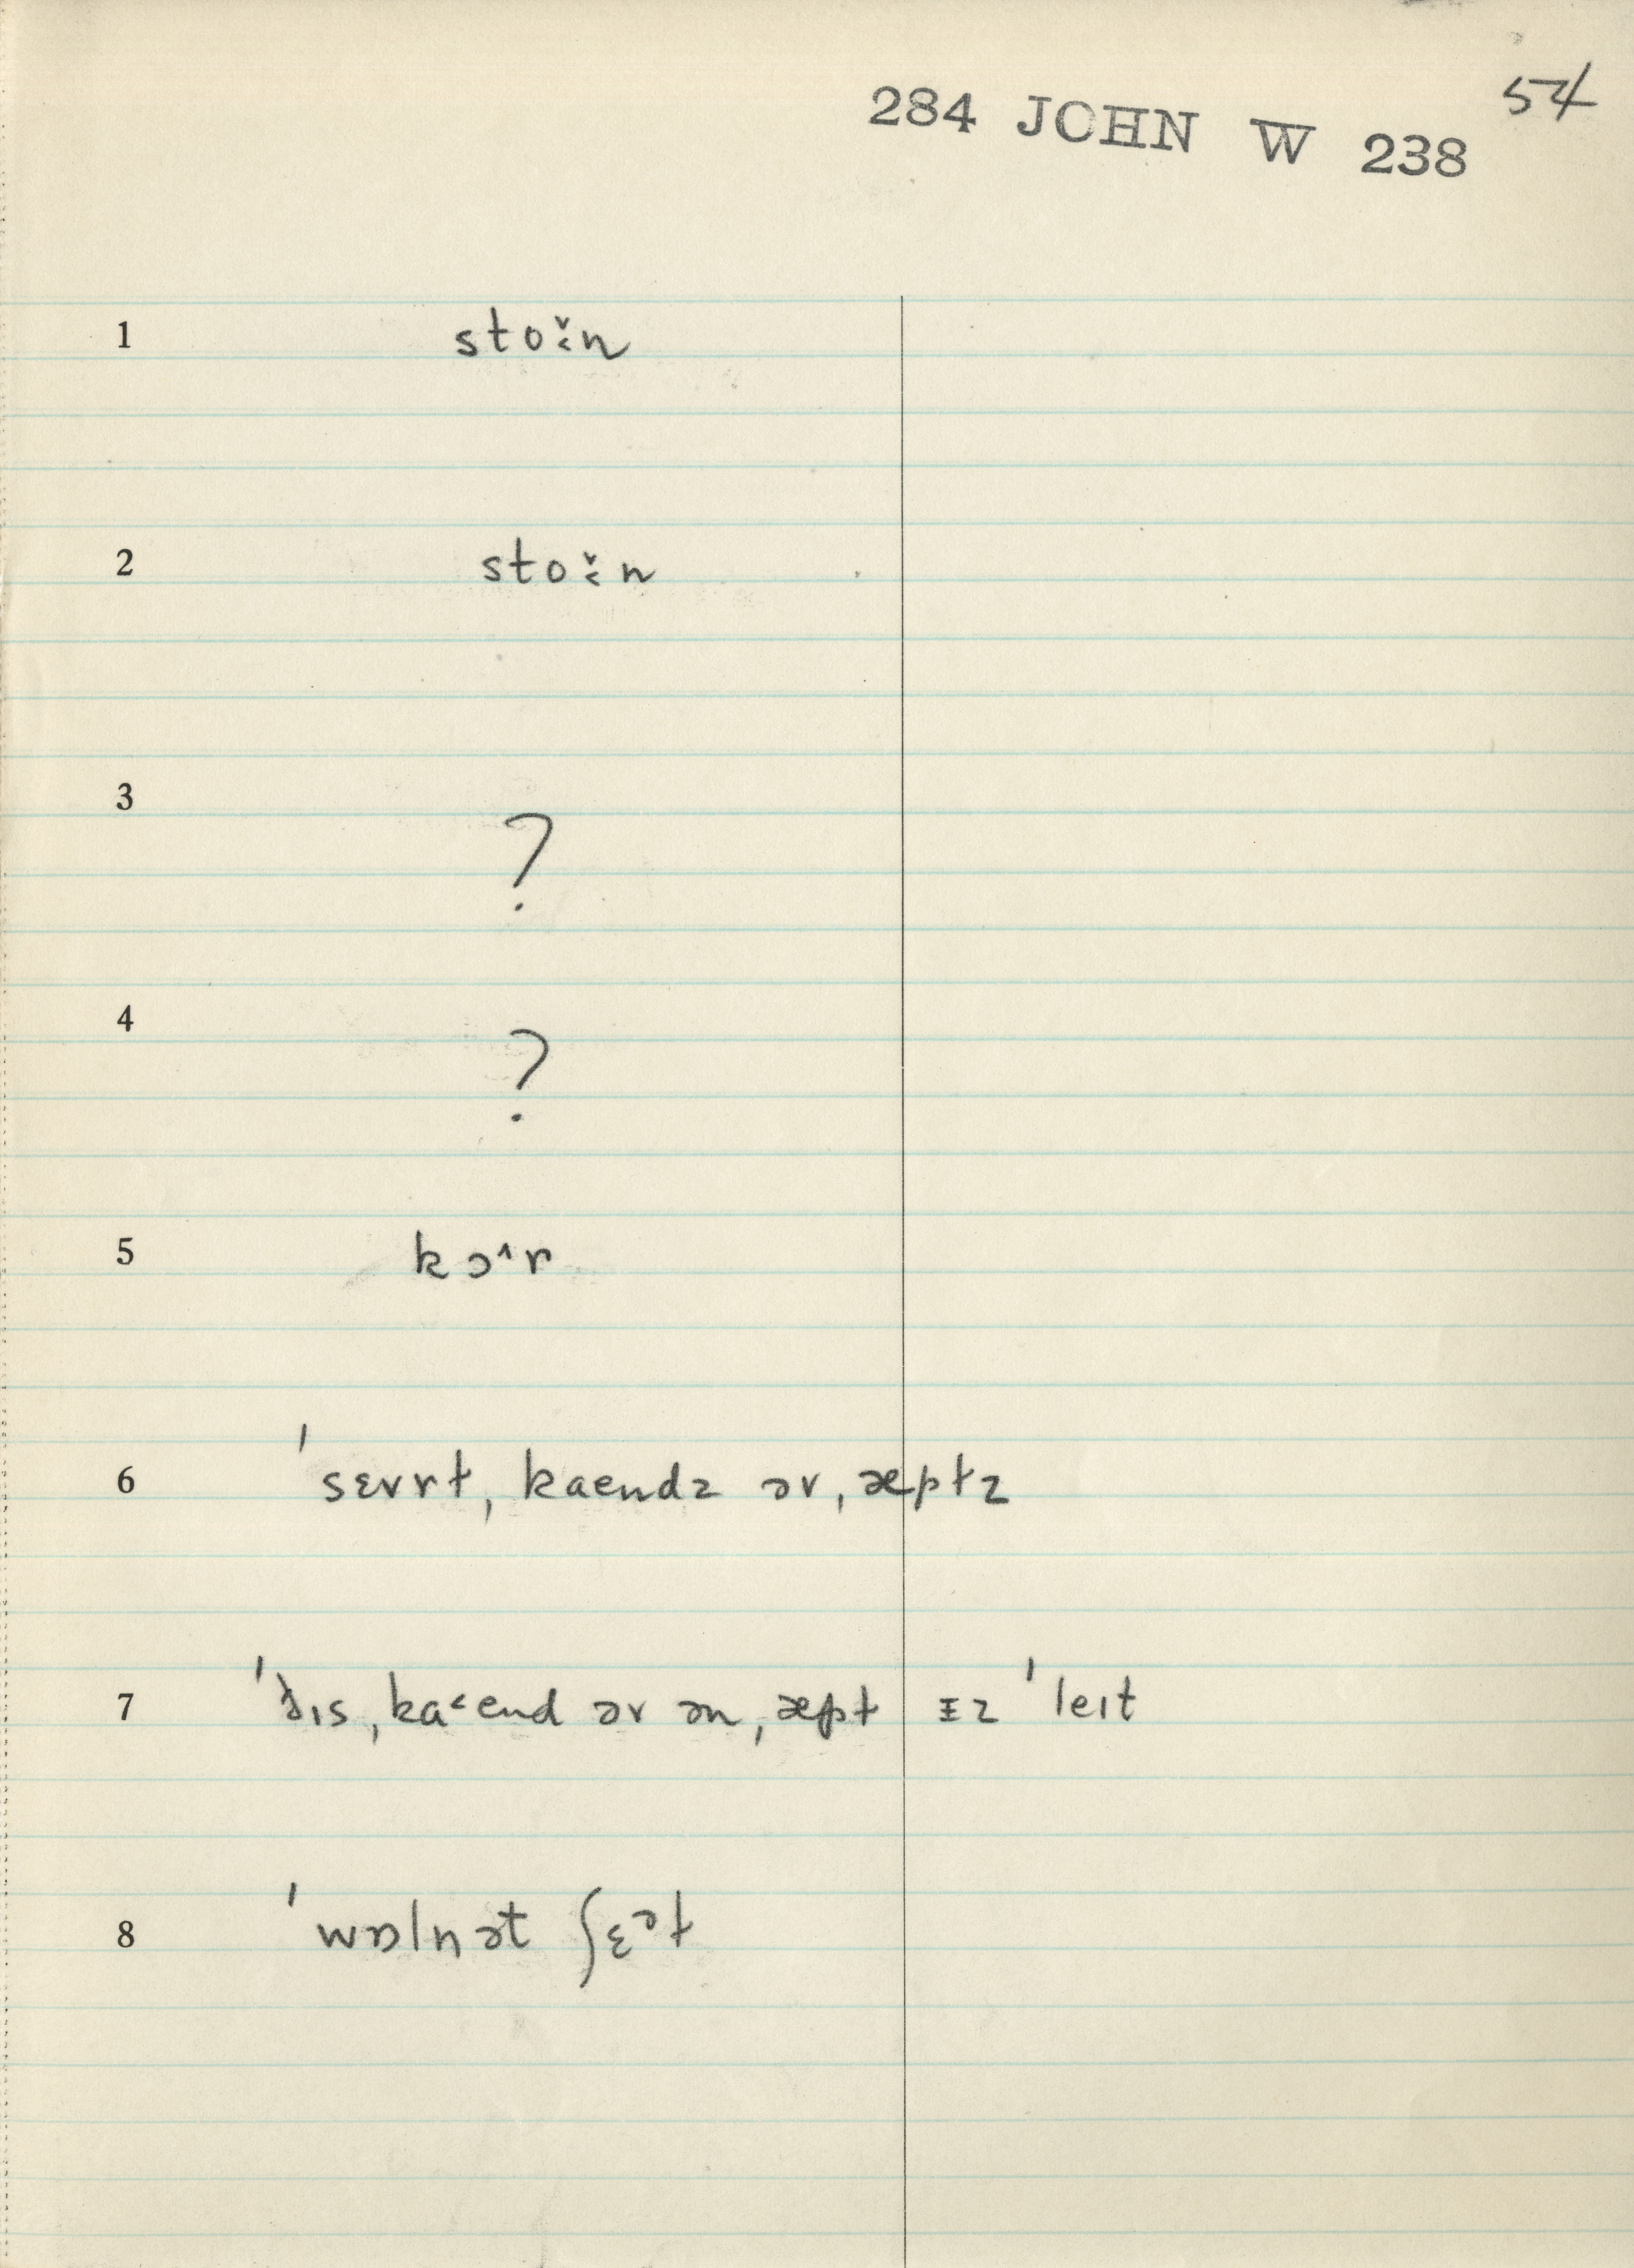 54
284 JOHN W 238
1 sto˓̌n
2 sto˓̌n
3 ?
4 ?
5 kɔ^r
6 ˈsɛvrt, kaendz əv ˌæptz
7 ˈðɪs ˌka˂end əv ən ˌæpt ɪz ˈleɪt
8 ˈwɒlnət ʃɛᵊt